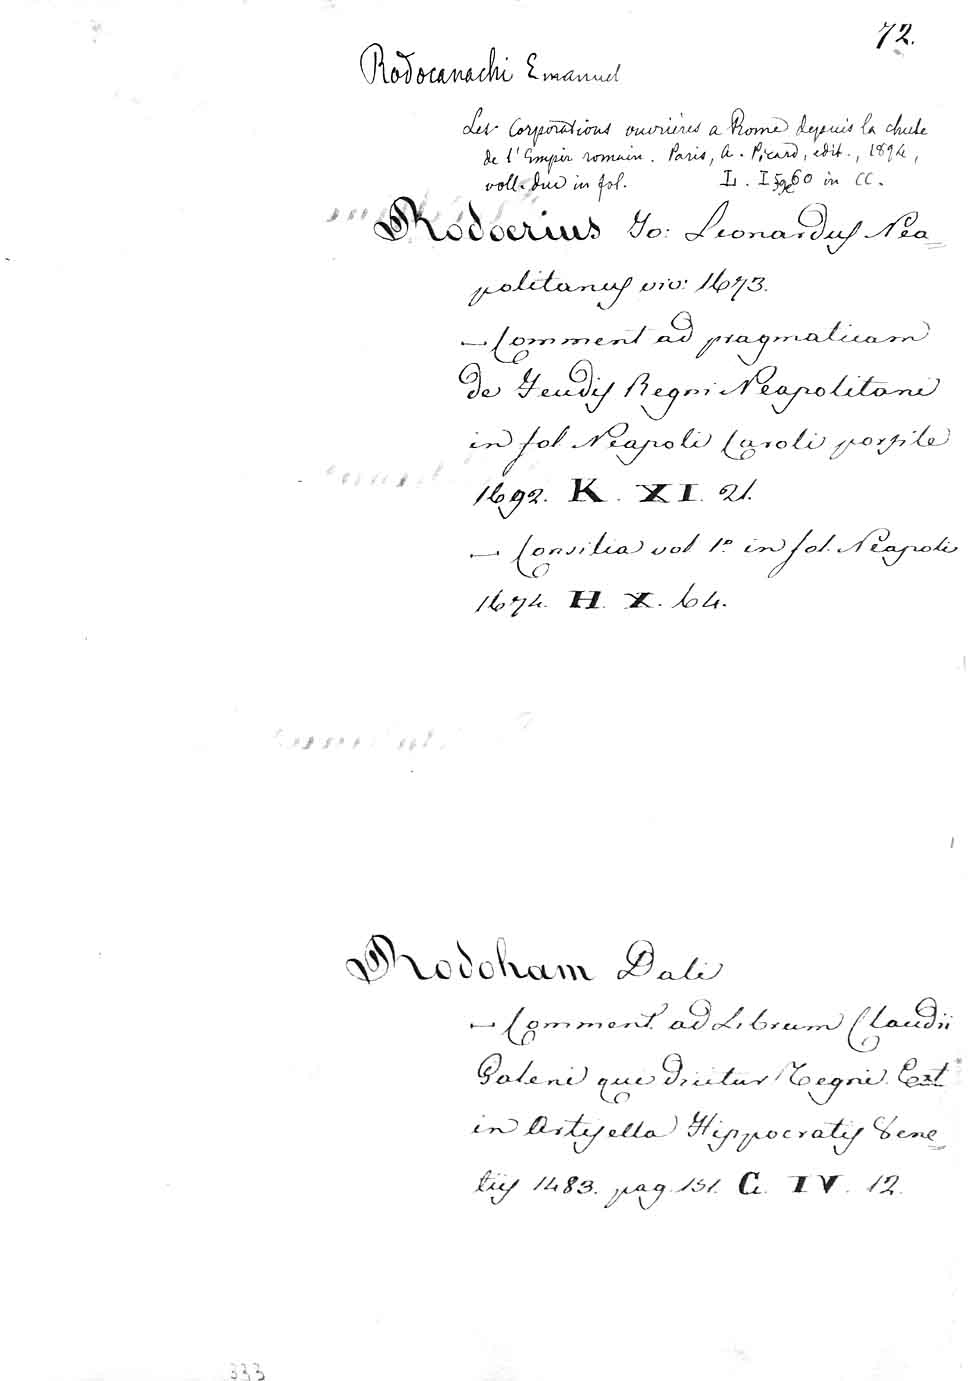 72.
Rodocanachi Emanuel
Les Corporations ouvrières a Rome depuis la chute
de l'Empir romain. Paris, A. Picard, edit., 1894,
voll. due in fol. L. I 60 in CC.
Rodoerius Jo: Leonardus Nea=
politanus viv: 1673.
— Comment ad pragmaticam
de Feudis Regni Neapolitani
in fol Neapoli Caroli porpile
1692. K. XI. 21.
— Consilia vol 1º in fol. Neapoli
1674. H. X. 64.
Rodoham Dali
— Comment. ad Librum Claudii
Galeni que dicitur Tegni. Ext
in Artisella Hippocratis Vene=
tiis 1483. pag. 151. G. IV. 12.
333